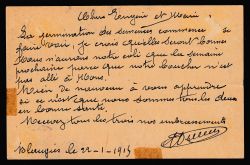 Chers Eugénie et Marie
La germination des semences commence se
faire voir, je crois qu'elles seront bonnes
Vous n'aurez notre coli que la semaine
prochaine parce que notre boucher n'est
pas allé à Mons.
Rien de nouveau à vous apprendre
si ce n'est que nous sommes tous les deux
en bonne santé.
Recevez tous les trois nos embrassements
Blaugies le 22-1-1915